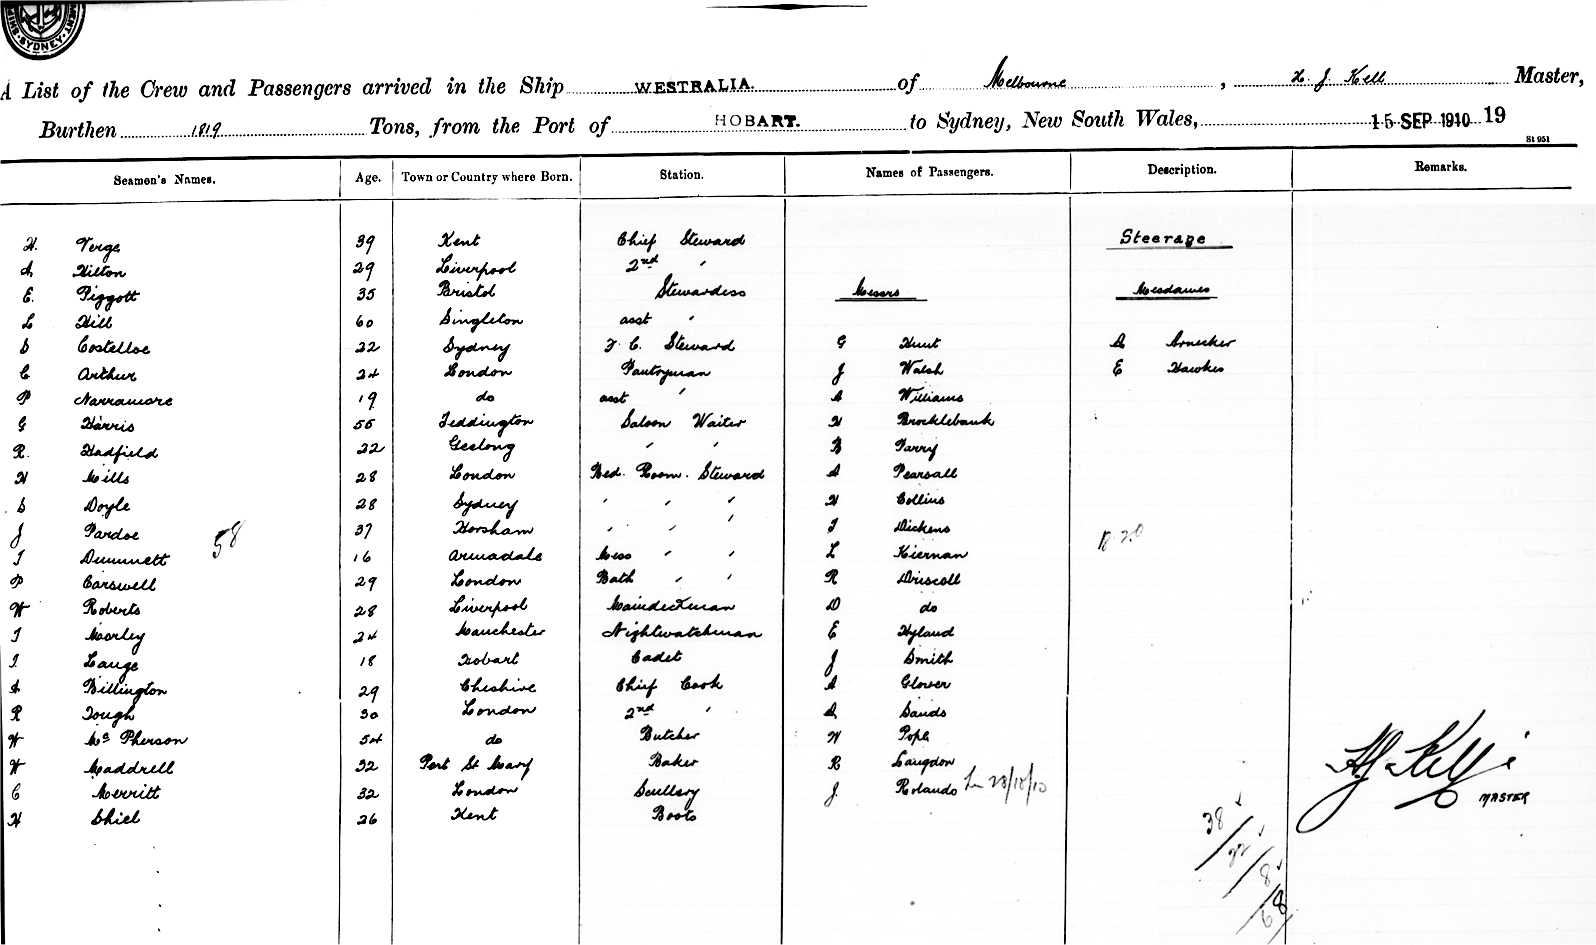 SYDNEY
A List of the Crew and Passengers arrived in the Ship WESTRALIA. of Melbourne, H. J. Kell Master,
Burthen 1819 Tons, from the Port of HOBART. to Sydney, New South Wales, 15 SEP 1910 19
St 951
Seamen's Names. Age. Town or Country where Born. Station. Names of Passengers. Description. Remarks.
H. Verge 39 Kent Chief Steward Steerage
A Hilton 29 Liverpool 2nd "
E. Piggott 35 Bristol Stewardess Messrs Mesdames
L Hill 60 Singleton asst "
D Costelloe 22 Sydney F. C. Steward G Hunt A Arnecker
C Arthur 24 London Pantryman J Walsh E Hawkes
P Narramore 19 do asst " A Williams
G Harris 55 Teddington Saloon Waiter H Brocklebank
R. Hadfield 22 Geelong " " B Parry
H Mills 28 London Bed. Room. Steward A Pearsall
D Doyle 28 Sydney " " " H Collins
J Pardoe 58 37 Horsham " " " T Dickens
T Dummett 16 Armadale Mess " " L Kiernan
P Carswell 29 London Bath " " R Driscoll
W Roberts 28 Liverpool Maindeckman D do
T Morley 24 Manchester Nightwatchman E Hyland
I. Lange 18 Hobart Cadet J Smith
A Billington 29 Cheshire Chief Cook A Glover
R Tough 30 London 2nd " A Sands
W Mc Pherson 54 do Butcher W Pope
W Maddrell 32 Port St Mary Baker R Langdon
C Merritt 32 London Scullery J. Rolands
H Shiel 26 Kent Boots
H J Kell
MASTER
38/22/8/68